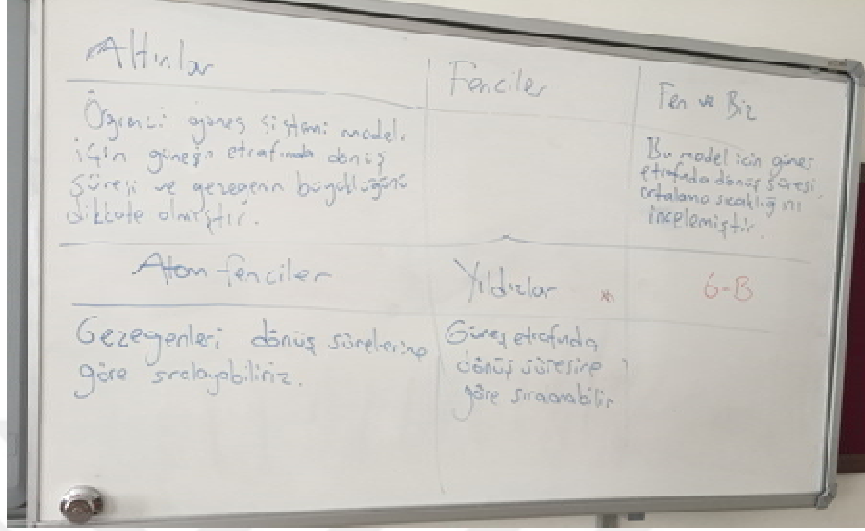 Altınlar
Öğrenci güneş sistemi model.
için güneşin etrafında dönüş
süresi ve gezegenin büyüklüğünü
dikkate almıştır.
Fenciler
Fen ve Biz
Bu model için güneş
etrafında dönüş süresi,
ortalama sıcaklığını
incelemiştir.
Atom fenciler
Gezegenleri dönüş sürelerine
göre sıralayabiliriz.
Yıldızlar
Güneş etrafında
dönüş süresine
göre sıralanabilir
6-B